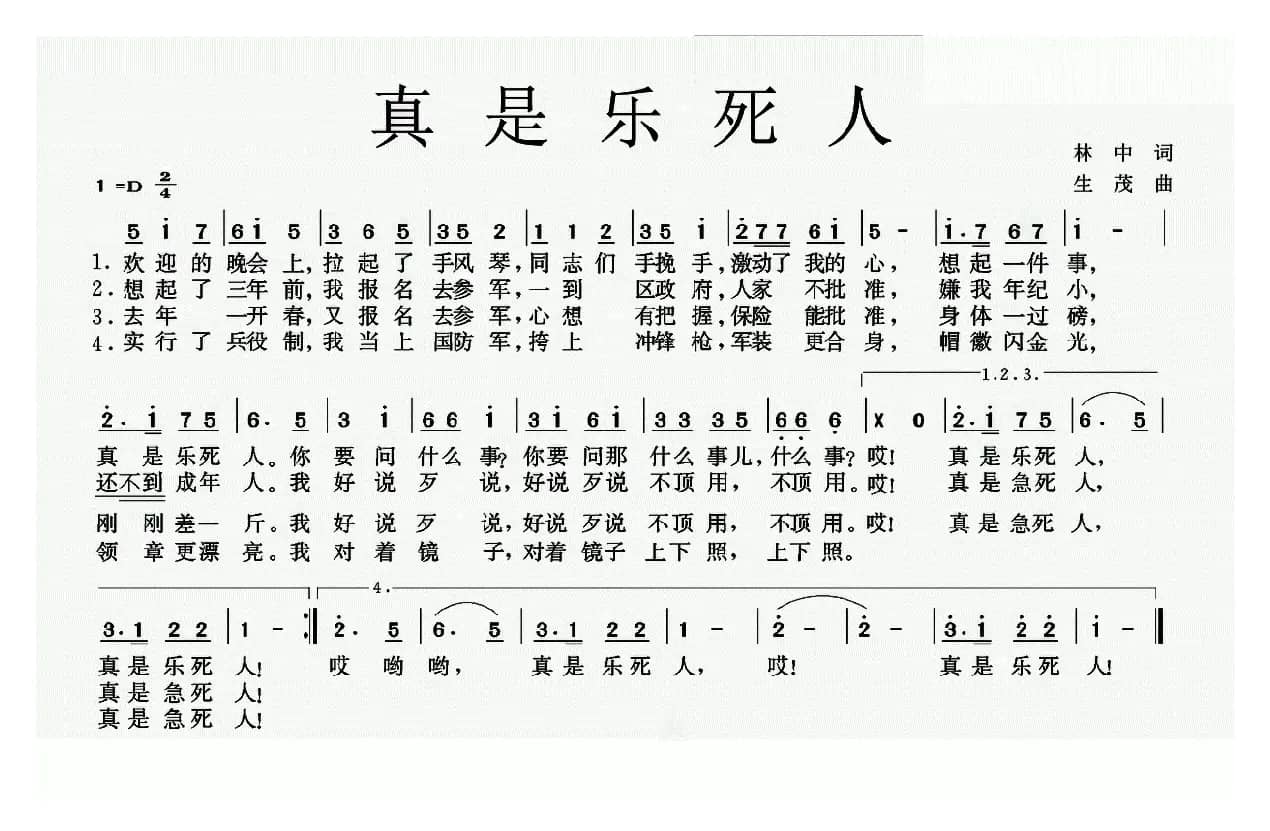 真是乐死人
林中词
1=D 2/4
生茂曲
5 i 7 | 6i 5 | 3 6 5 | 35 2 | 1 1 2 | 35 i | 277 6i | 5 - | i.7 67 | i - |
1.欢迎的晚会上,拉起了手风琴,同志们手挽手,激动了我的心,想起一件事,
2.想起了三年前,我报名去参军,一到区政府,人家不批准,嫌我年纪小,
3.去年一开春,又报名去参军,心想有把握,保险能批准,身体一过磅,
4.实行了兵役制,我当上国防军,挎上冲锋枪,军装更合身,帽徽闪金光,
1.2.3.
2.i 75 | 6. 5 | 3 i | 66 i | 3i 6i | 33 35 | 66 6 | X 0 | 2.i 75 | 6. 5 |
真是乐死人。你要问什么事?你要问那什么事儿,什么事?哎!真是乐死人,
还不到成年人。我好说歹说,好说歹说不顶用,不顶用。哎!真是急死人,
刚刚差一斤。我好说歹说,好说歹说不顶用,不顶用。哎!真是急死人,
领章更漂亮。我对着镜子,对着镜子上下照,上下照。
4.
3.1 22 | 1 - :| 2. 5 | 6. 5 | 3.1 22 | 1 - | 2 - | 2 - | 3.i 22 | i - |
真是乐死人!哎哟哟,真是乐死人,哎!真是乐死人!
真是急死人!
真是急死人!